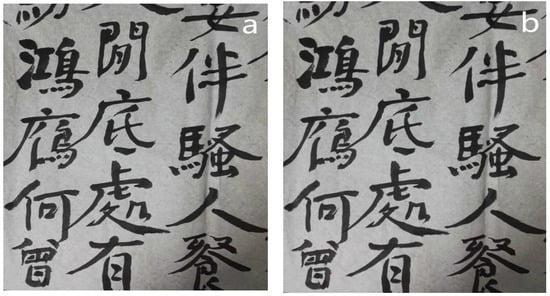 a
伴騷人餐
間底處有
鴻鴈何曾
b
伴騷人餐
間底處有
鴻鴈何曾